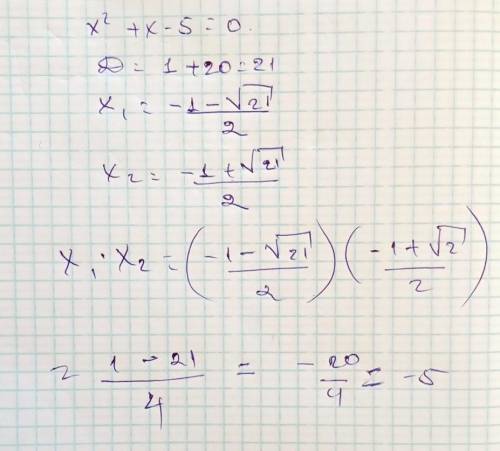 x² + x - 5 = 0.
D = 1 + 20 = 21
x₁ = (-1 - √21)/2
x₂ = (-1 + √21)/2
x₁ · x₂ = ((-1 - √21)/2) ((-1 + √2)/2)
= (1 - 21)/4 = -20/4 = -5